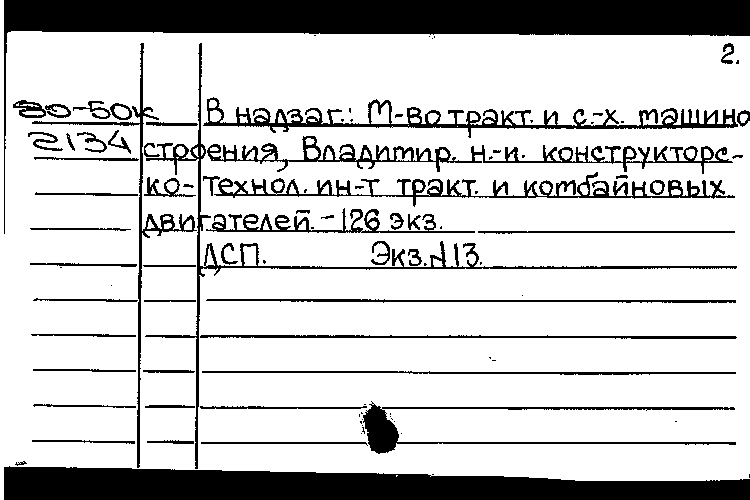 2.
80-50к В надзаг.: М-во тракт. и с.-х. машино
2134 строения, Владимир. н.-и. конструкторс-
ко-технол. ин-т тракт. и комбайновых
двигателей. - 126 экз.
ДСП. Экз.N13.